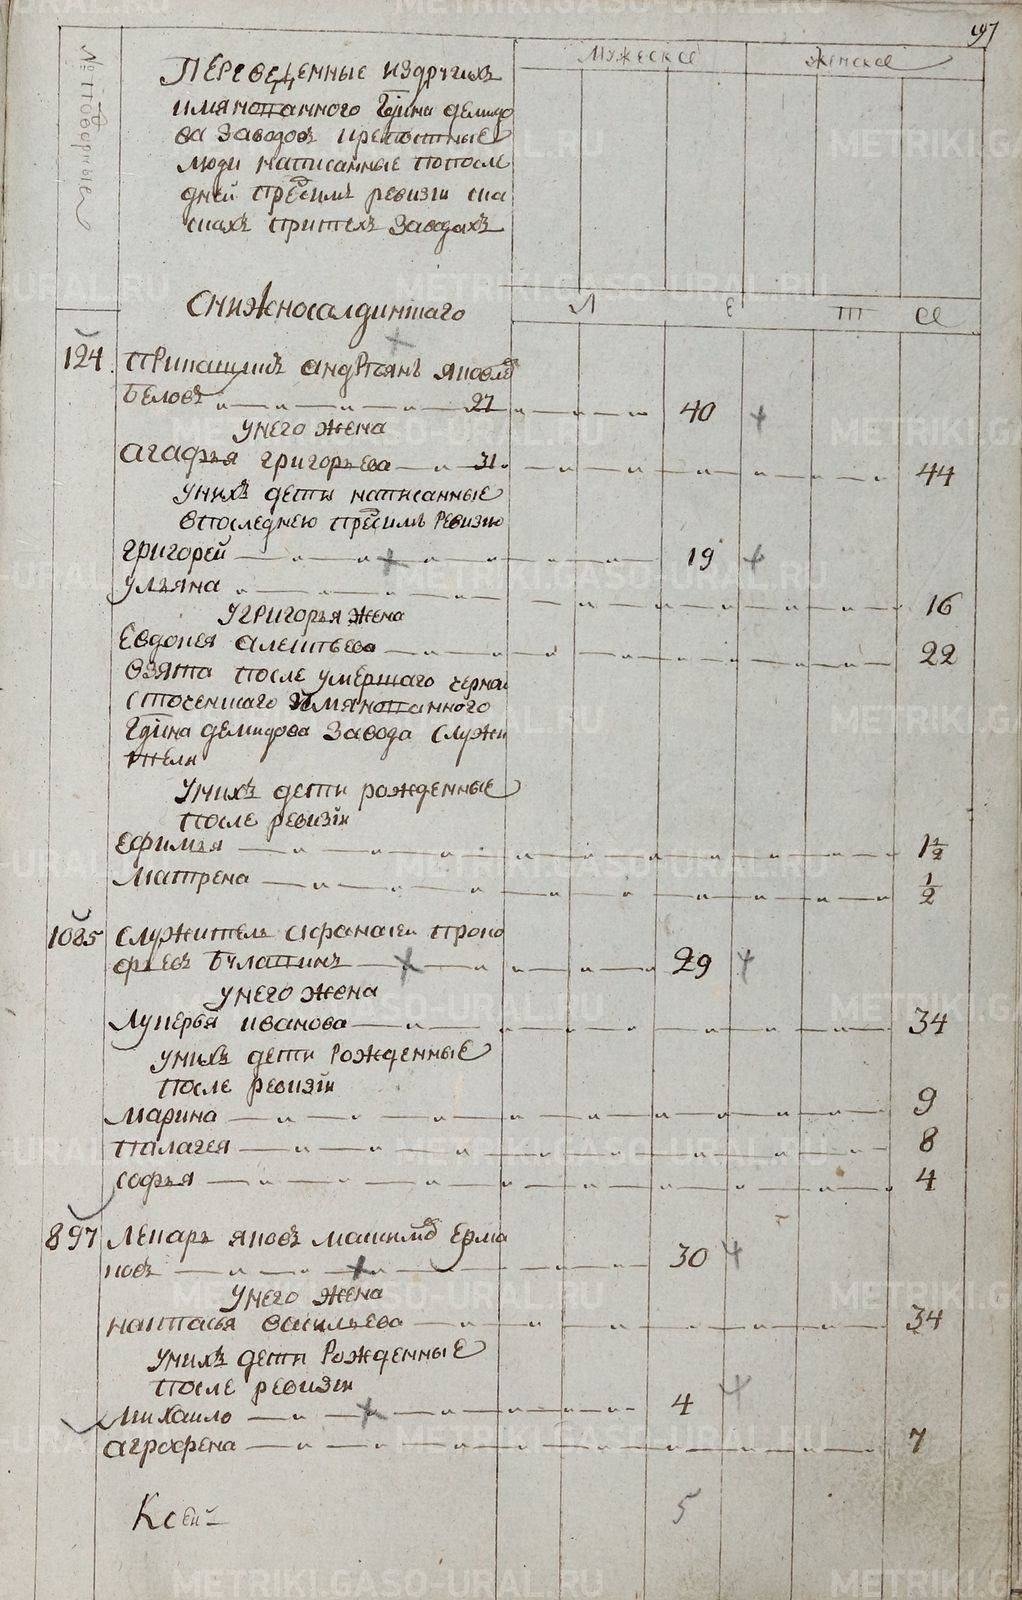 197
№ повторные
Мужеское
Женское
Переведенные издругихъ
имянотанного Гдина Демидо
ва заводовъ крепостные
люди написанные попосле
дней пред симъ ревизги ска
скахъ притехъ заводахъ
Л Е Т Ъ
Снижносалдинскаго
124 Прикащикъ Андреянъ Яковле
Беловъ 27 40
Унего жена
Агафья Григорьева 31 44
Унихъ дети написанные
впоследнею пред симъ ревизию
Григорей 19
Ульяна 16
Угригорья жена
Евдокея Алексеева 22
взята после умершаго черно
источенскаго имянотанного
Гдина Демидова завода служи
теля
Унихъ дети рожденные
после ревизiи
Ефимья 1 1/2
Матрена 1/2
1085 Служитель Афанасеи Проко
фьевъ Булатинъ 29
Унего жена
Лукерья Иванова 34
Унихъ дети рожденные
после ревизiи
Марина 9
Палагея 8
Софья 4
897 Лекарь Яковъ Максимо Ерма
ковъ 30
Унего жена
Настасья Васильева 34
Унихъ дети рожденные
после ревизiи
Михаило 4
Агрофена 7
К сей
5
METRIKI.GASO-URAL.RU